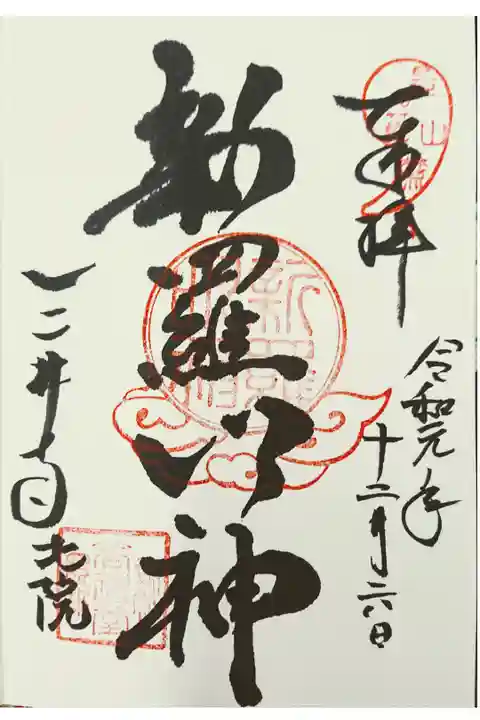 奉拝
令和元年
十二月六日
新羅明神
三井寺北院